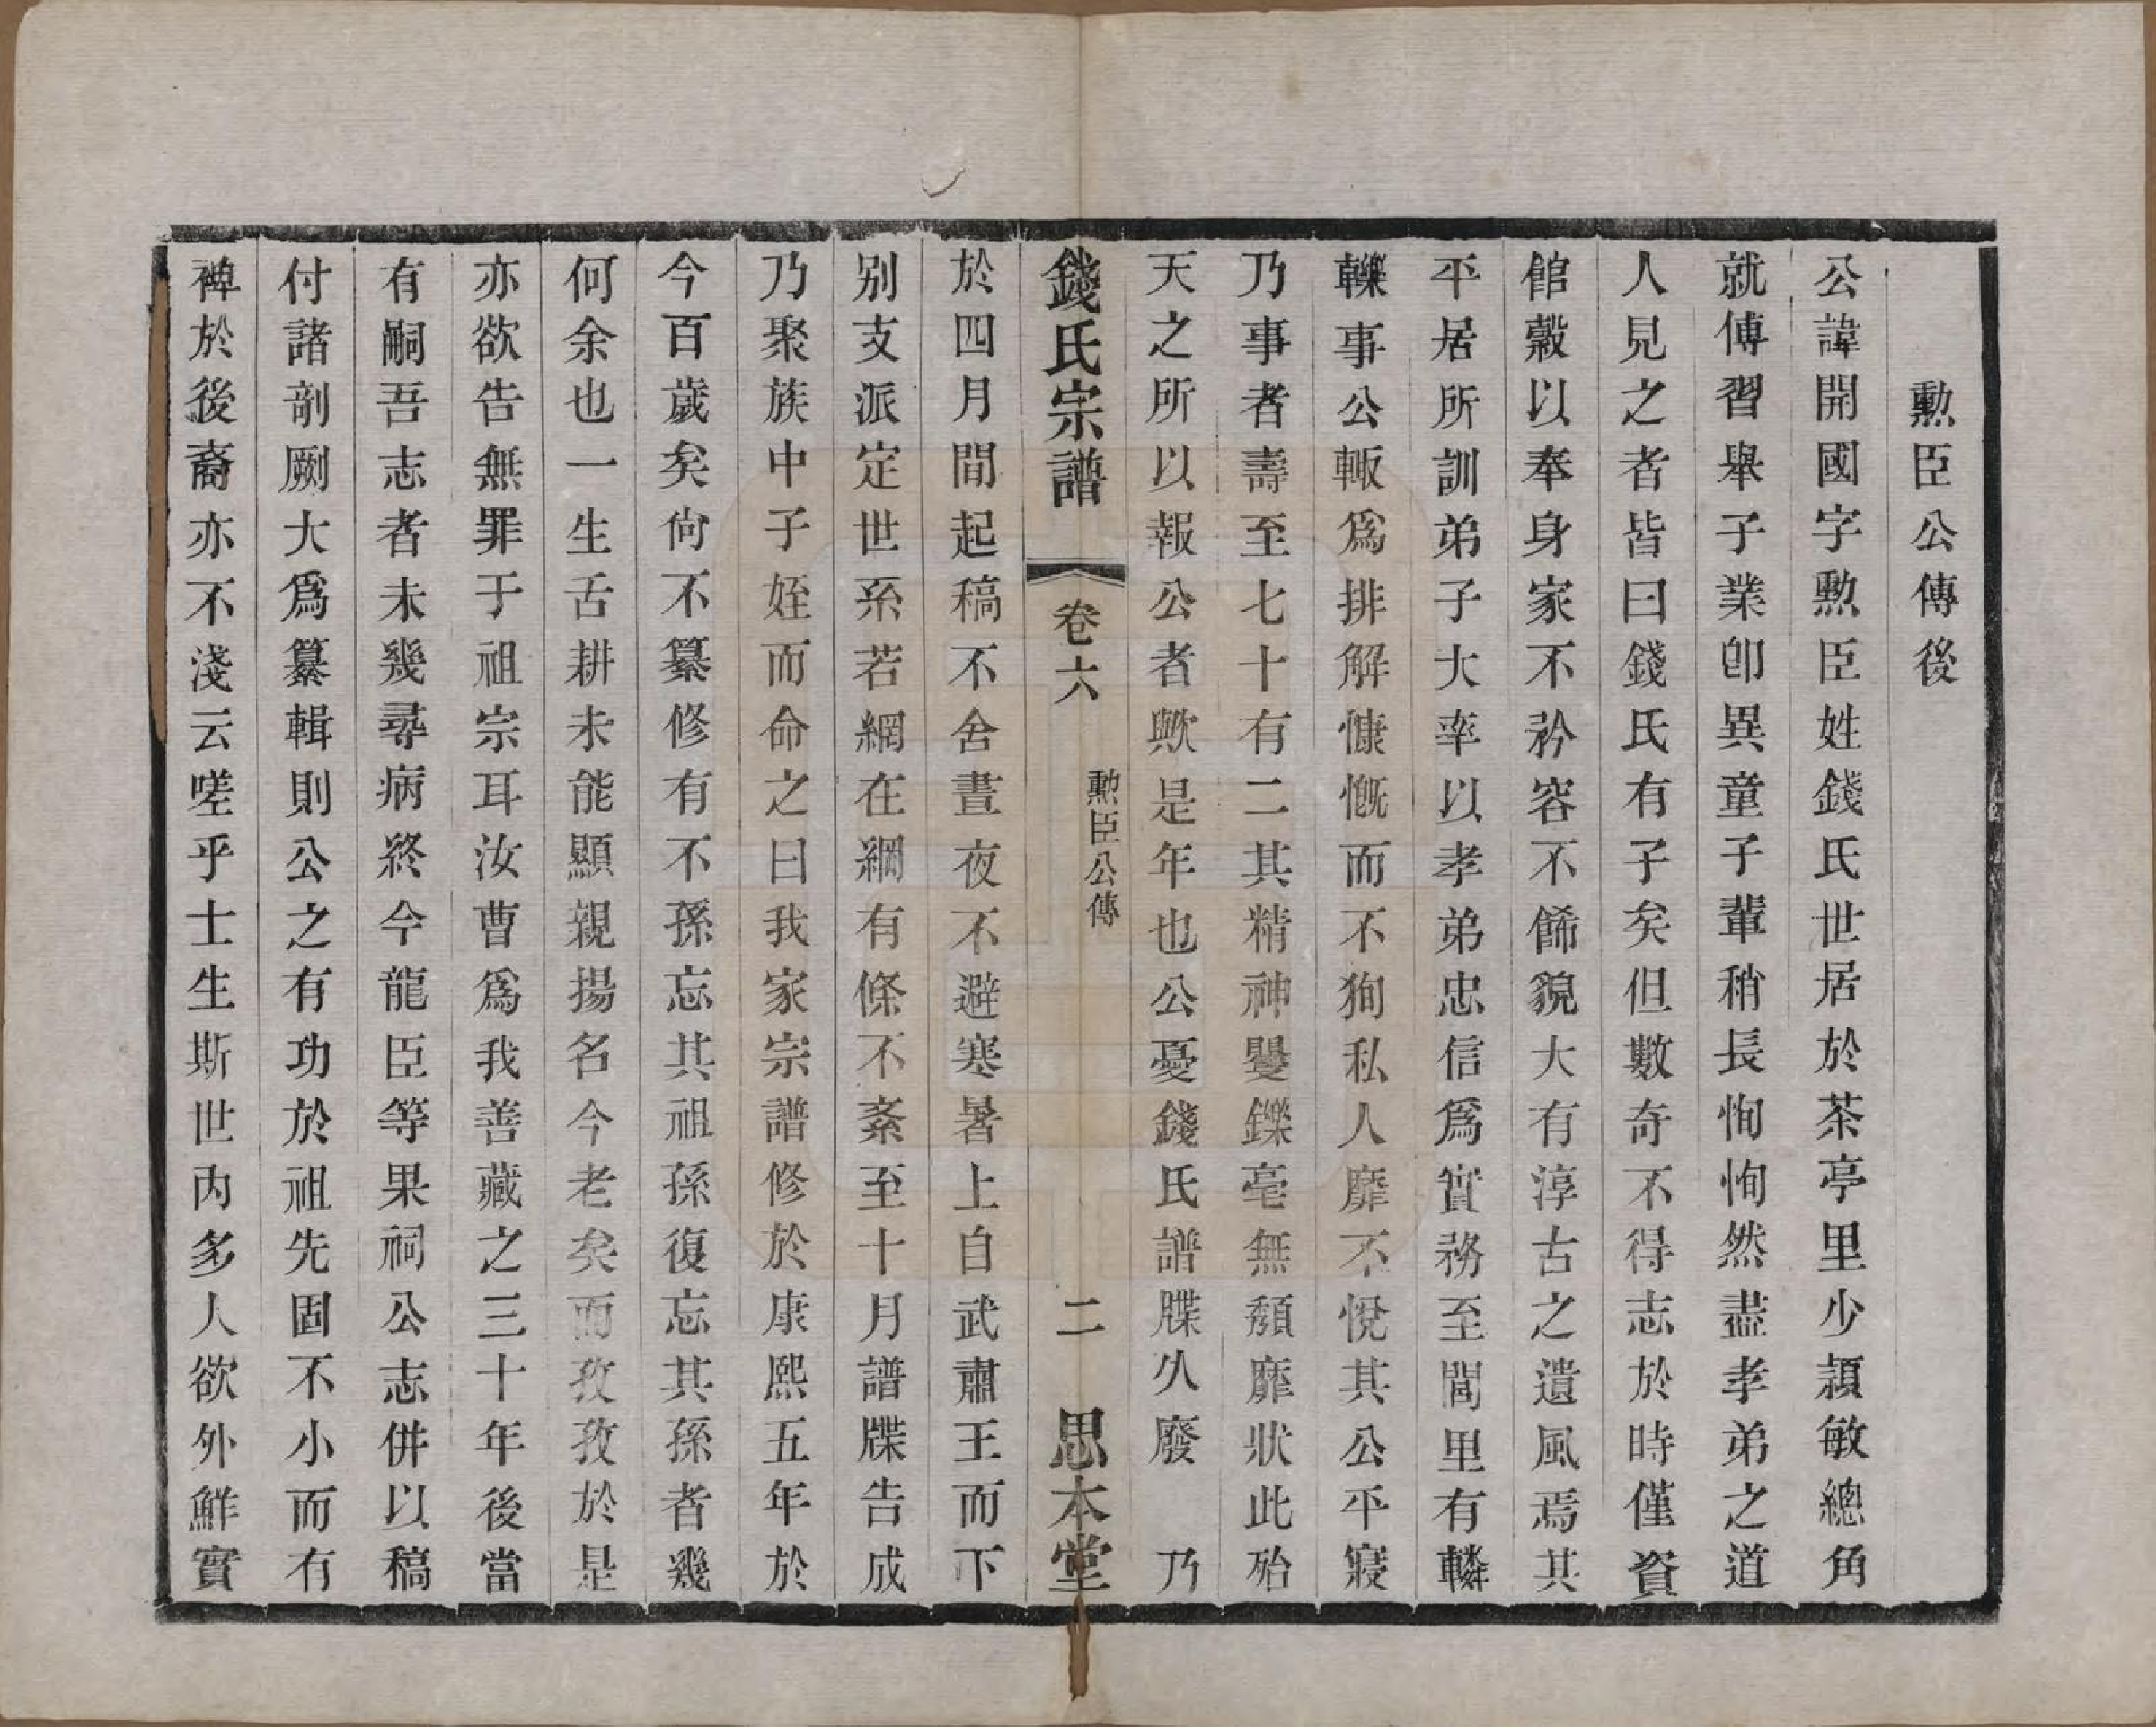 勲臣公傳後
公諱開國字勲臣姓錢氏世居於茶亭里少頴敏總角
就傅習舉子業卽異童子輩稍長恂恂然盡孝弟之道
人見之者皆曰錢氏有子矣但數奇不得志於時僅資
館穀以奉身家不衿容不餙貌大有淳古之遺風焉其
平居所訓弟子大率以孝弟忠信爲實務至閭里有轔
轢事公輙爲排解慷慨而不狥私人靡不悅其公平寢
乃事者壽至七十有二其精神矍鑠毫無頹靡狀此殆
天之所以報公者歟是年也公憂錢氏譜牒久廢 乃
錢氏宗譜 卷六 勲臣公傳 二 思本堂
於四月間起稿不舍晝夜不避寒暑上自武肅王而下
别支派定世系若網在綱有條不紊至十月譜牒告成
乃聚族中子姪而命之曰我家宗譜修於康熙五年於
今百歲矣尙不纂修有不孫忘其祖孫復忘其孫者幾
何余也一生舌耕未能顯親揚名今老矣而孜孜於是
亦欲告無罪于祖宗耳汝曹爲我善藏之三十年後當
有嗣吾志者未幾尋病終今龍臣等果祠公志併以稿
付諸剞劂大爲纂輯則公之有功於祖先固不小而有
裨於後裔亦不淺云嗟乎士生斯世内多人欲外鮮實